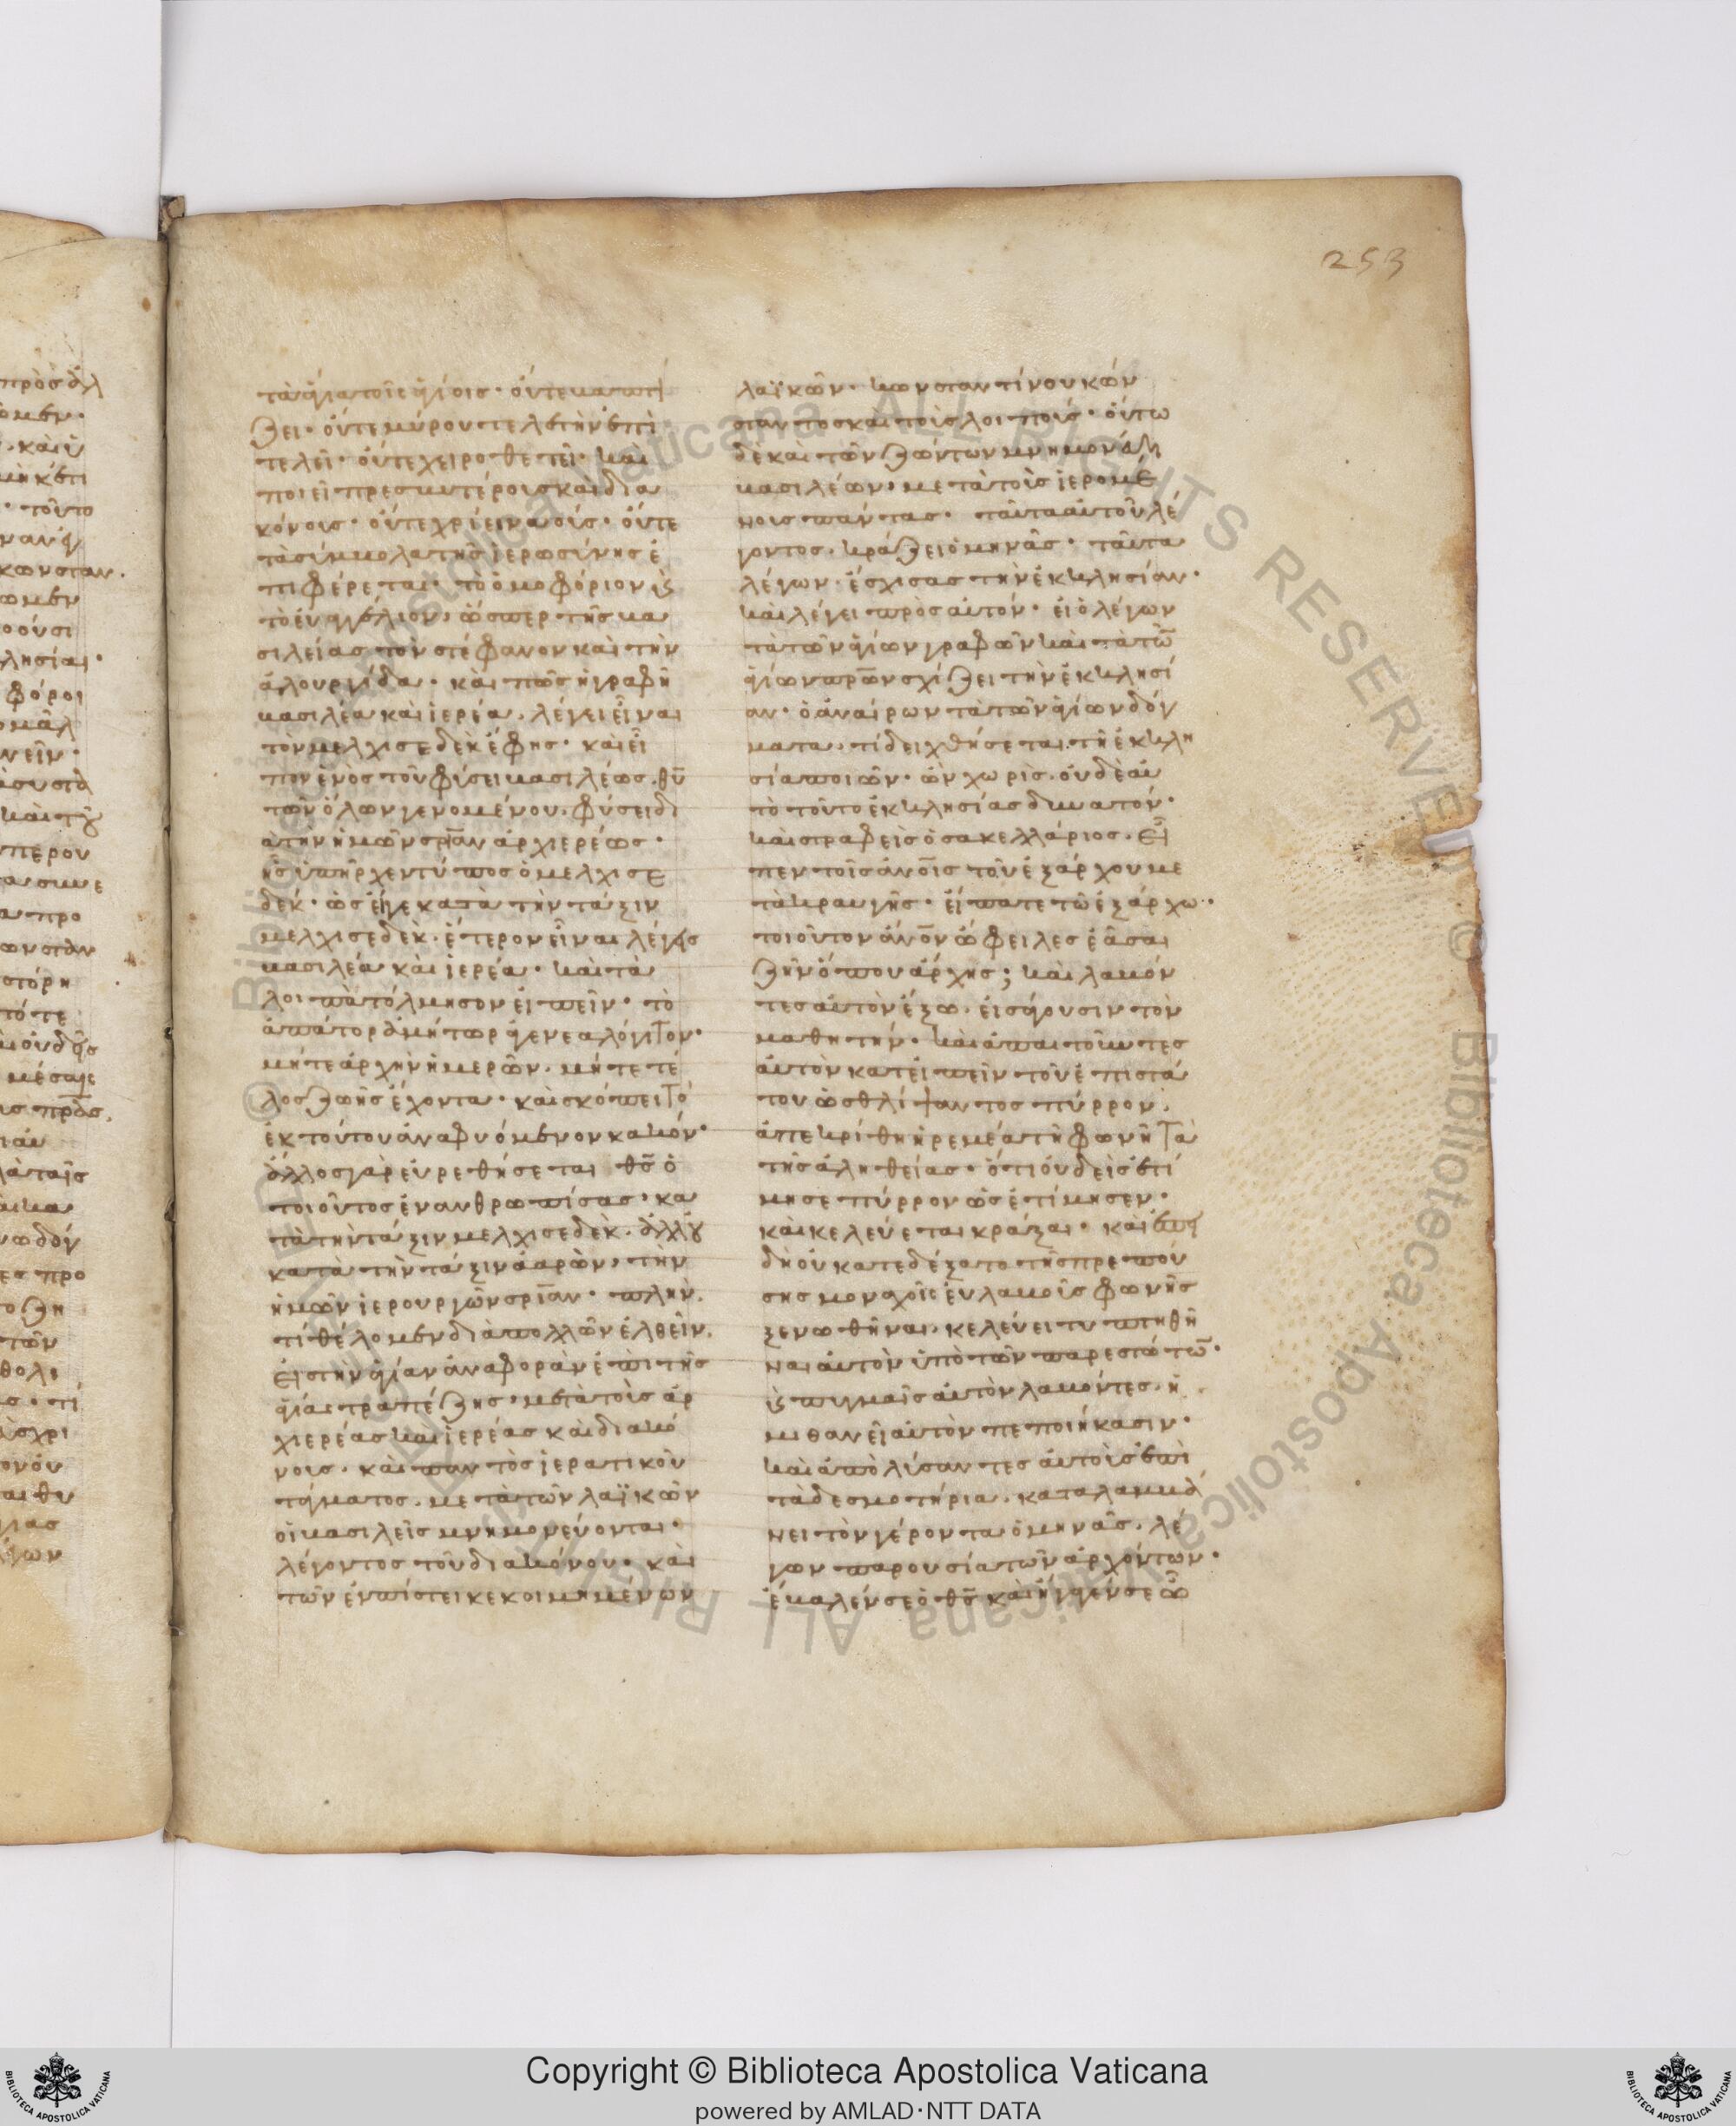 253
τὰ ἅγια τοῖς ἁγίοις· οὔτε βαπτί
ζει· οὔτε μύρου τελετὴν ἐπι
τελεῖ· οὔτε χειροθετεῖ· καὶ
ποιεῖ πρεσβυτέροις καὶ δια
κόνοις· οὔτε χρίει ναούς· οὔτε
τὰ σύμβολα τῆς ἱερωσύνης ἐ
πιφέρεται· τὸ ὁμοφόριον καὶ
τὸ εὐαγγέλιον, ὥσπερ τῆς βα
σιλείας τὸν στέφανον καὶ τὴν
ἁλουργίδα· καὶ πῶς ἡ γραφὴ
βασιλέα καὶ ἱερέα, λέγει εἶναι
τὸν μελχισεδὲκ ἔφης· καὶ εἶ
πον ἑνὸς τοῦ φύσει βασιλέως, θυ
τῶν ὅλων γενομένου, φύσει δι
ὰ τὴν ἡμῶν σρίαν ἀρχιερέως·
ἧς ὑπῆρχεν τύπος ὁ μελχισε
δέκ· ὡς εἴγε κατὰ τὴν τάξιν
μελχισεδὲκ· ἕτερον εἶναι λέγεις
βασιλέα καὶ ἱερέα· καὶ τὰ
λοιπὰ τόλμησον εἰπεῖν· τὸ
ἀπάτορ ἀμήτωρ ἀγενεαλόγιτον·
μήτε ἀρχὴν ἡμερῶν, μήτε τέ
λος ζωῆς ἔχοντα· καὶ σκόπει τὸ
ἐκ τούτου ἀναφυόμενον κακόν·
ἄλλος γὰρ εὑρεθήσεται θς ὁ
τοιοῦτος ἐνανθρωπίσας· κα
τὰ τὴν τάξιν μελχισεδὲκ· ἀλλ' οὐ
κατὰ τὴν τάξιν ἀαρὼν, τὴν
ἡμῶν ἱερουργῶν σρίαν· πλὴν,
τί θέλομεν διὰ πολλῶν ἐλθεῖν,
εἰς τὴν ἁγίαν ἀναφορὰν ἐπὶ τῆς
ἁγίας τραπέζης, μετὰ τοὺς ἀρ
χιερέας καὶ ἱερέας καὶ διακό
νους, καὶ παντὸς ἱερατικοῦ
τάγματος, μετὰ τῶν λαϊκῶν
οἱ βασιλεῖς μνημονεύονται·
λέγοντος τοῦ διακόνου· καὶ
τῶν ἐν πίστει κεκοιμημένων
λαϊκῶν· κωνσταντίνου κών
σταντος καὶ τοὺς λοιπούς· οὕτω
δὲ καὶ τῶν ζώντων μνημονεύει
βασιλέων, μετὰ τοὺς ἱερωμέ
νους πάντας· ταῦτα αὐτοῦ λέ
γοντος, κράζει ὁ μηνᾶς· ταῦτα
λέγων, ἔσχισας τὴν ἐκκλησίαν·
καὶ λέγει πρὸς αὐτόν· εἰ ὁ λέγων
τὰ τῶν ἁγίων γραφῶν καὶ τὰ τῶ
ἁγίων πρων σχίζει τὴν ἐκκλησί
αν· ὁ ἀναίρων τὰ τῶν ἁγίων δόγ
ματα, τί δειχθήσεται τῇ ἐκκλη
σία ποιῶν· ὧν χωρὶς, οὐδὲ αὐ
τὸ τοῦτο ἐκκλησίας δυνατόν·
καὶ στραφεὶς ὁ σακελλάριος, εἶ
πεν τοῖς ἀνοῖς τοῦ ἐξάρχου με
τὰ κραυγῆς· εἴπατε τῶ ἐξάρχω·
τοιοῦτον ἀνον ὤφειλες ἐᾶσαι
ζῆν ὅπου ἄρχης; καὶ λαβόν
τες αὐτὸν ἔξω, εἰσάγουσιν τὸν
μαθητήν· καὶ ἀπαιτοῦντες
αὐτὸν κατειπεῖν τοῦ ἐπιστά
του ὡς θλίψαντος πύρρον,
ἀπεκρίθη ἠρεμέα τῆ φωνῆ τὰ
τῆς ἀληθείας· ὅτι οὐδεὶς ἐτί
μησε πύρρον ὡς ἐτίμησεν·
καὶ κελεύεται κράξαι· καὶ ἐπει
δὴ οὐ κατεδέξατο τῆς πρεπού
σης μοναχοῖς εὐλαβοῦς φωνῆς
ξενωθῆναι, κελεύει τυπτηθῆ
ναι αὐτὸν ὑπὸ τῶν παρεστώτω·
καὶ πυγμαῖς αὐτὸν λαβόντες, ἡ
μιθανεῖ αὐτὸν πεποιήκασιν·
καὶ ἀπολύσαντες αὐτοὺς ἐπὶ
τὰ δεσμοτήρια, καταλαμβά
νει τὸν γέροντα ὁ μηνᾶς, λέ
γων παρουσία τῶν ἀρχόντων·
ἔβαλέν σε ὁ θς καὶ ἤγαγέν σε ὧ
Copyright © Biblioteca Apostolica Vaticana
powered by AMLAD·NTT DATA